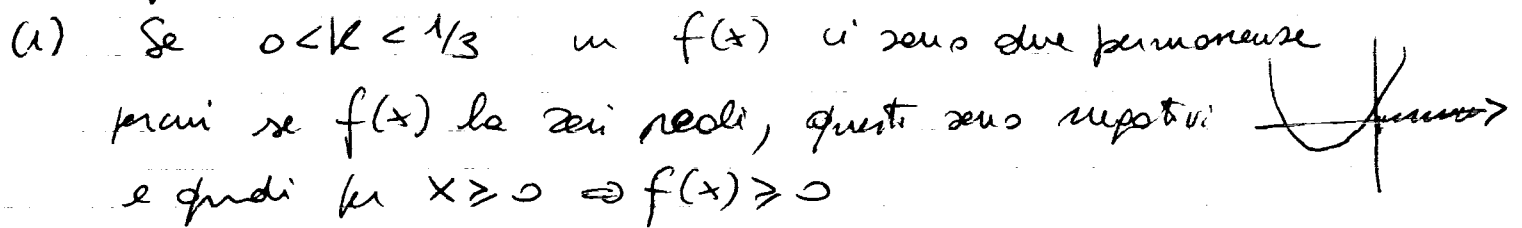 (1) Se 0<k<1/3 in f(x) ci sono due permanenze
perciò se f(x) ha zeri reali, questi sono negativi
e quindi per x ≥ 0 ⇒ f(x) ≥ 0